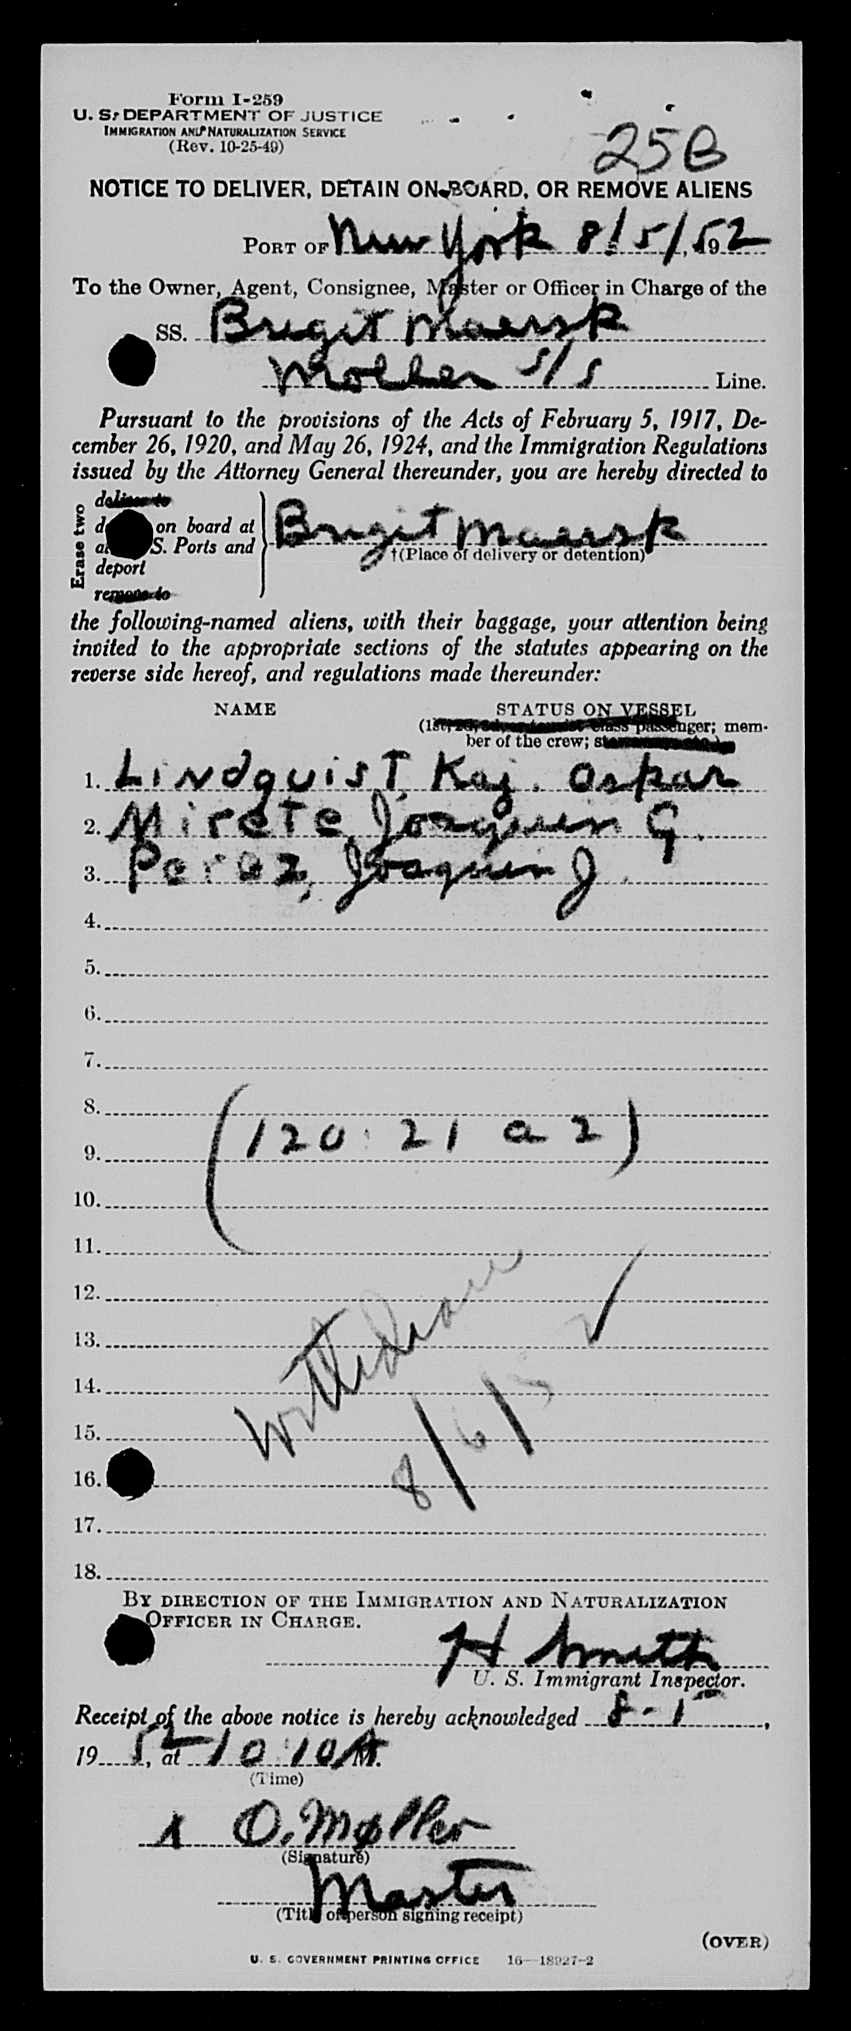 Form I-259
U. S. DEPARTMENT OF JUSTICE
IMMIGRATION AND NATURALIZATION SERVICE
(Rev. 10-25-49)
25B
NOTICE TO DELIVER, DETAIN ON BOARD, OR REMOVE ALIENS
PORT OF New York 8/5/, 1952
To the Owner, Agent, Consignee, Master or Officer in Charge of the
SS. Brigit Maersk
Moller S/S Line.
Pursuant to the provisions of the Acts of February 5, 1917, De-
cember 26, 1920, and May 26, 1924, and the Immigration Regulations
issued by the Attorney General thereunder, you are hereby directed to
Erase two
deliver to
on board at
S. Ports and
deport
remove to
Brigit Maersk
†(Place of delivery or detention)
the following-named aliens, with their baggage, your attention being
invited to the appropriate sections of the statutes appearing on the
reverse side hereof, and regulations made thereunder:
NAME STATUS ON VESSEL
(1st, class passenger; mem-
ber of the crew;
1. Lindquist, Kaj. Oskar
2. Mirete, Joaquin G.
3. Perez, Joaquin J.
4.
5.
6.
7.
8.
(120:21 a 2)
9.
10.
11.
12.
13.
14.
15.
16.
17.
18.
Withdrawn
8/6/52
BY DIRECTION OF THE IMMIGRATION AND NATURALIZATION
OFFICER IN CHARGE.
H Smith
U. S. Immigrant Inspector.
Receipt of the above notice is hereby acknowledged 8-5,
1952, at 10:10 A M.
(Time)
X O. Møller
(Signature)
Master
(Title of person signing receipt)
(OVER)
U. S. GOVERNMENT PRINTING OFFICE 16—18927-2